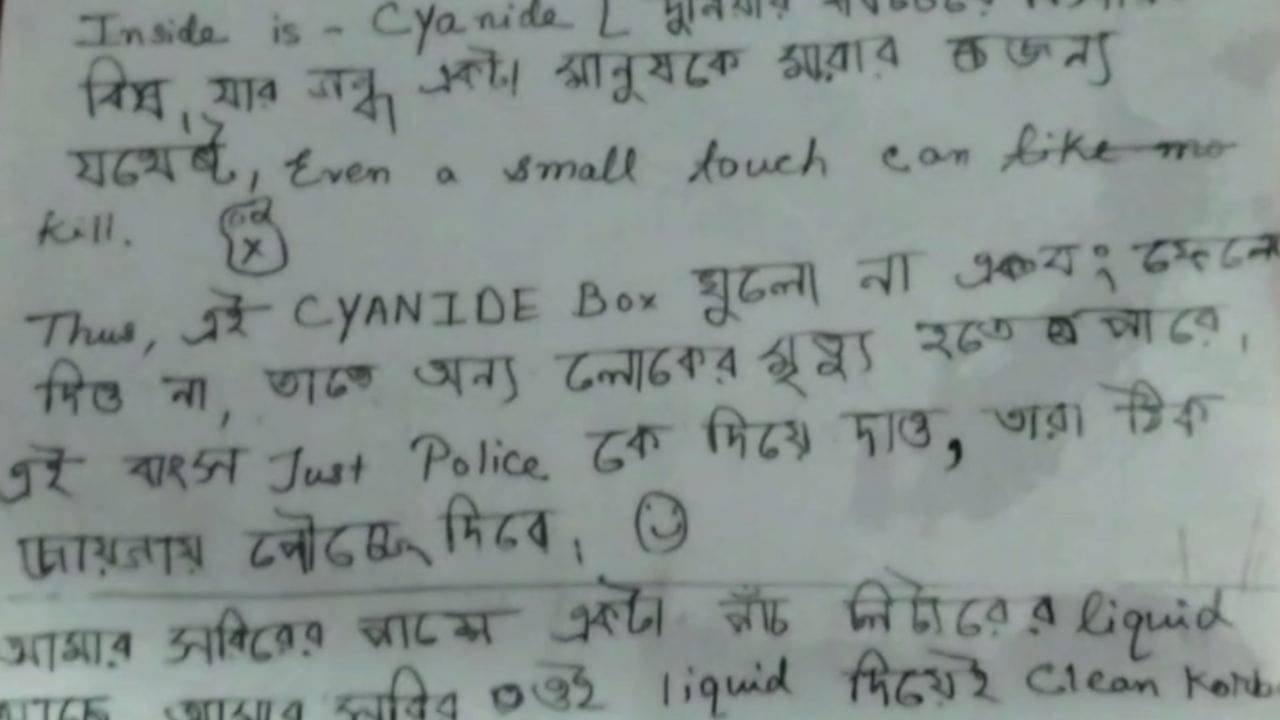 Inside is - Cyanide [ দুনিয়ার
বিষ, যার গন্ধ একটা মানুষকে মারার জন্য
যথেষ্ট, Even a small touch can like mo
kill.
Thus, এই CYANIDE Box খুলো না এবং ফেলে
দিও না, তাতে অন্য লোকের মৃত্যু হতে পারে।
এই বাক্স Just Police কে দিয়ে দাও, তারা ঠিক
জায়গায় পৌছে দিবে।
আমার শরিরের পাশে একটা পাঁচ লিটারের liquid
আছে আমার শরির ওই liquid দিয়েই Clean